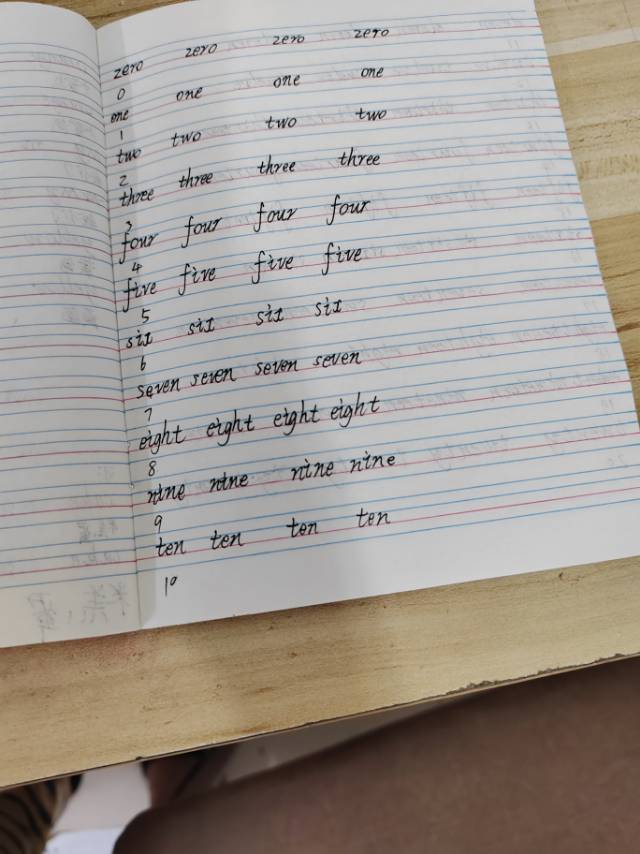 zero zero zero zero
0
one one one one
1
two two two two
2
three three three three
3
four four four four
4
five five five five
5
six six six six
6
seven seven seven seven
7
eight eight eight eight
8
nine nine nine nine
9
ten ten ten ten
10